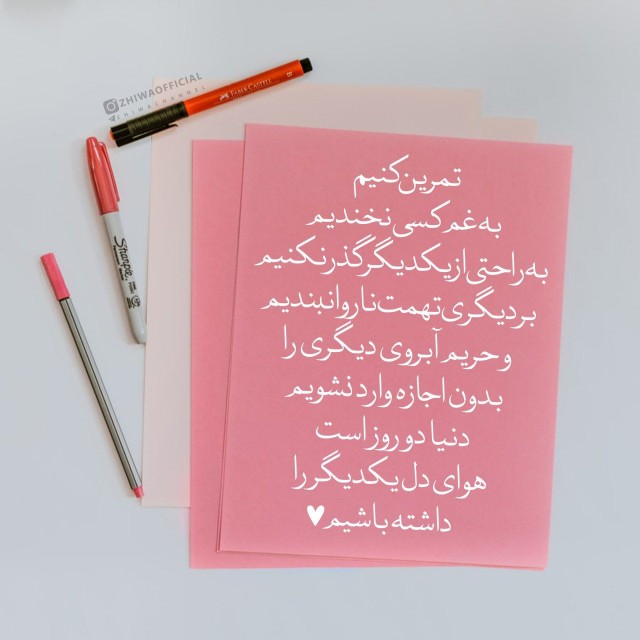 ZHIWAOFFICIAL
ZHIWACHANNEL
FABER-CASTELL B
Sharpie
تمرین کنیم
به غم کسی نخندیم
به راحتی از یکدیگر گذر نکنیم
بر دیگری تهمت ناروا نبندیم
و حریم آبروی دیگری را
بدون اجازه وارد نشویم
دنیا دو روز است
هوای دل یکدیگر را
داشته باشیم♥